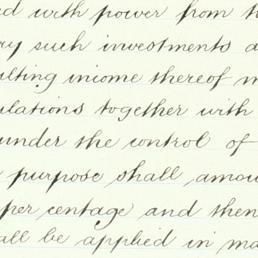 d with power from t
ry such investments a
ulting iniome thereof m
ulations together with
under the control of
purpose shall amou
per centage and then
all be applied in ma